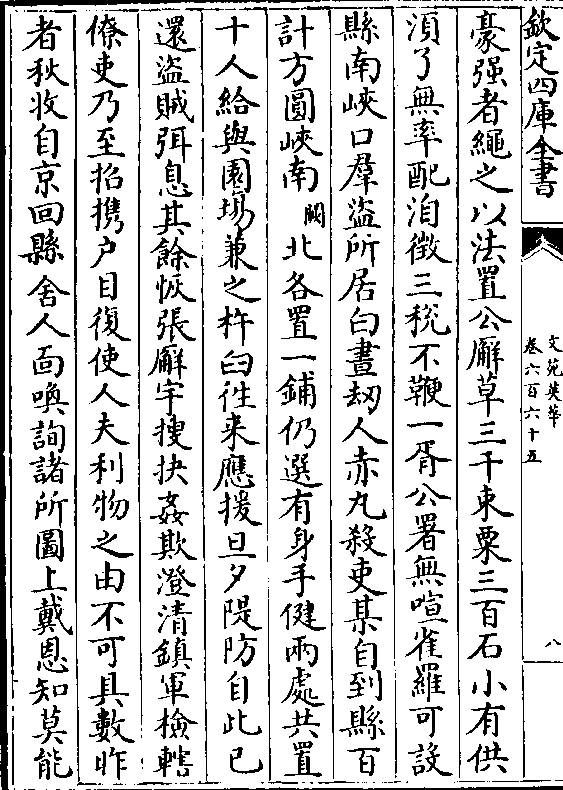 欽定四庫全書
文苑英華
卷六百六十五
八
豪强者繩之以法置公廨草三千束粟三百石小有供
湏了無率配洎徵三稅不鞭一胥公署無喧雀羅可設
縣南峽口羣盗所居白晝刼人赤丸殺吏某自到縣百
計方圓峽南闕北各置一鋪仍選有身手健兩處共置
十人給與園場兼之杵臼徃来應援旦夕隄防自此已
還盗賊弭息其餘恢張廨宇搜抉姦欺澄清鎮軍檢轄
僚吏乃至招携户目復使人夫利物之由不可具數昨
者秋收自京回縣舍人面喚詢諸所圖上戴恩知莫能